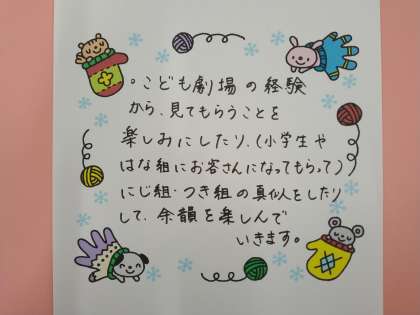 。こども劇場の経験
から、見てもらうことを
楽しみにしたり、(小学生や
はな組にお客さんになってもらって)
にじ組・つき組の真似をしたり
して、余韻を楽しんで
いきます。